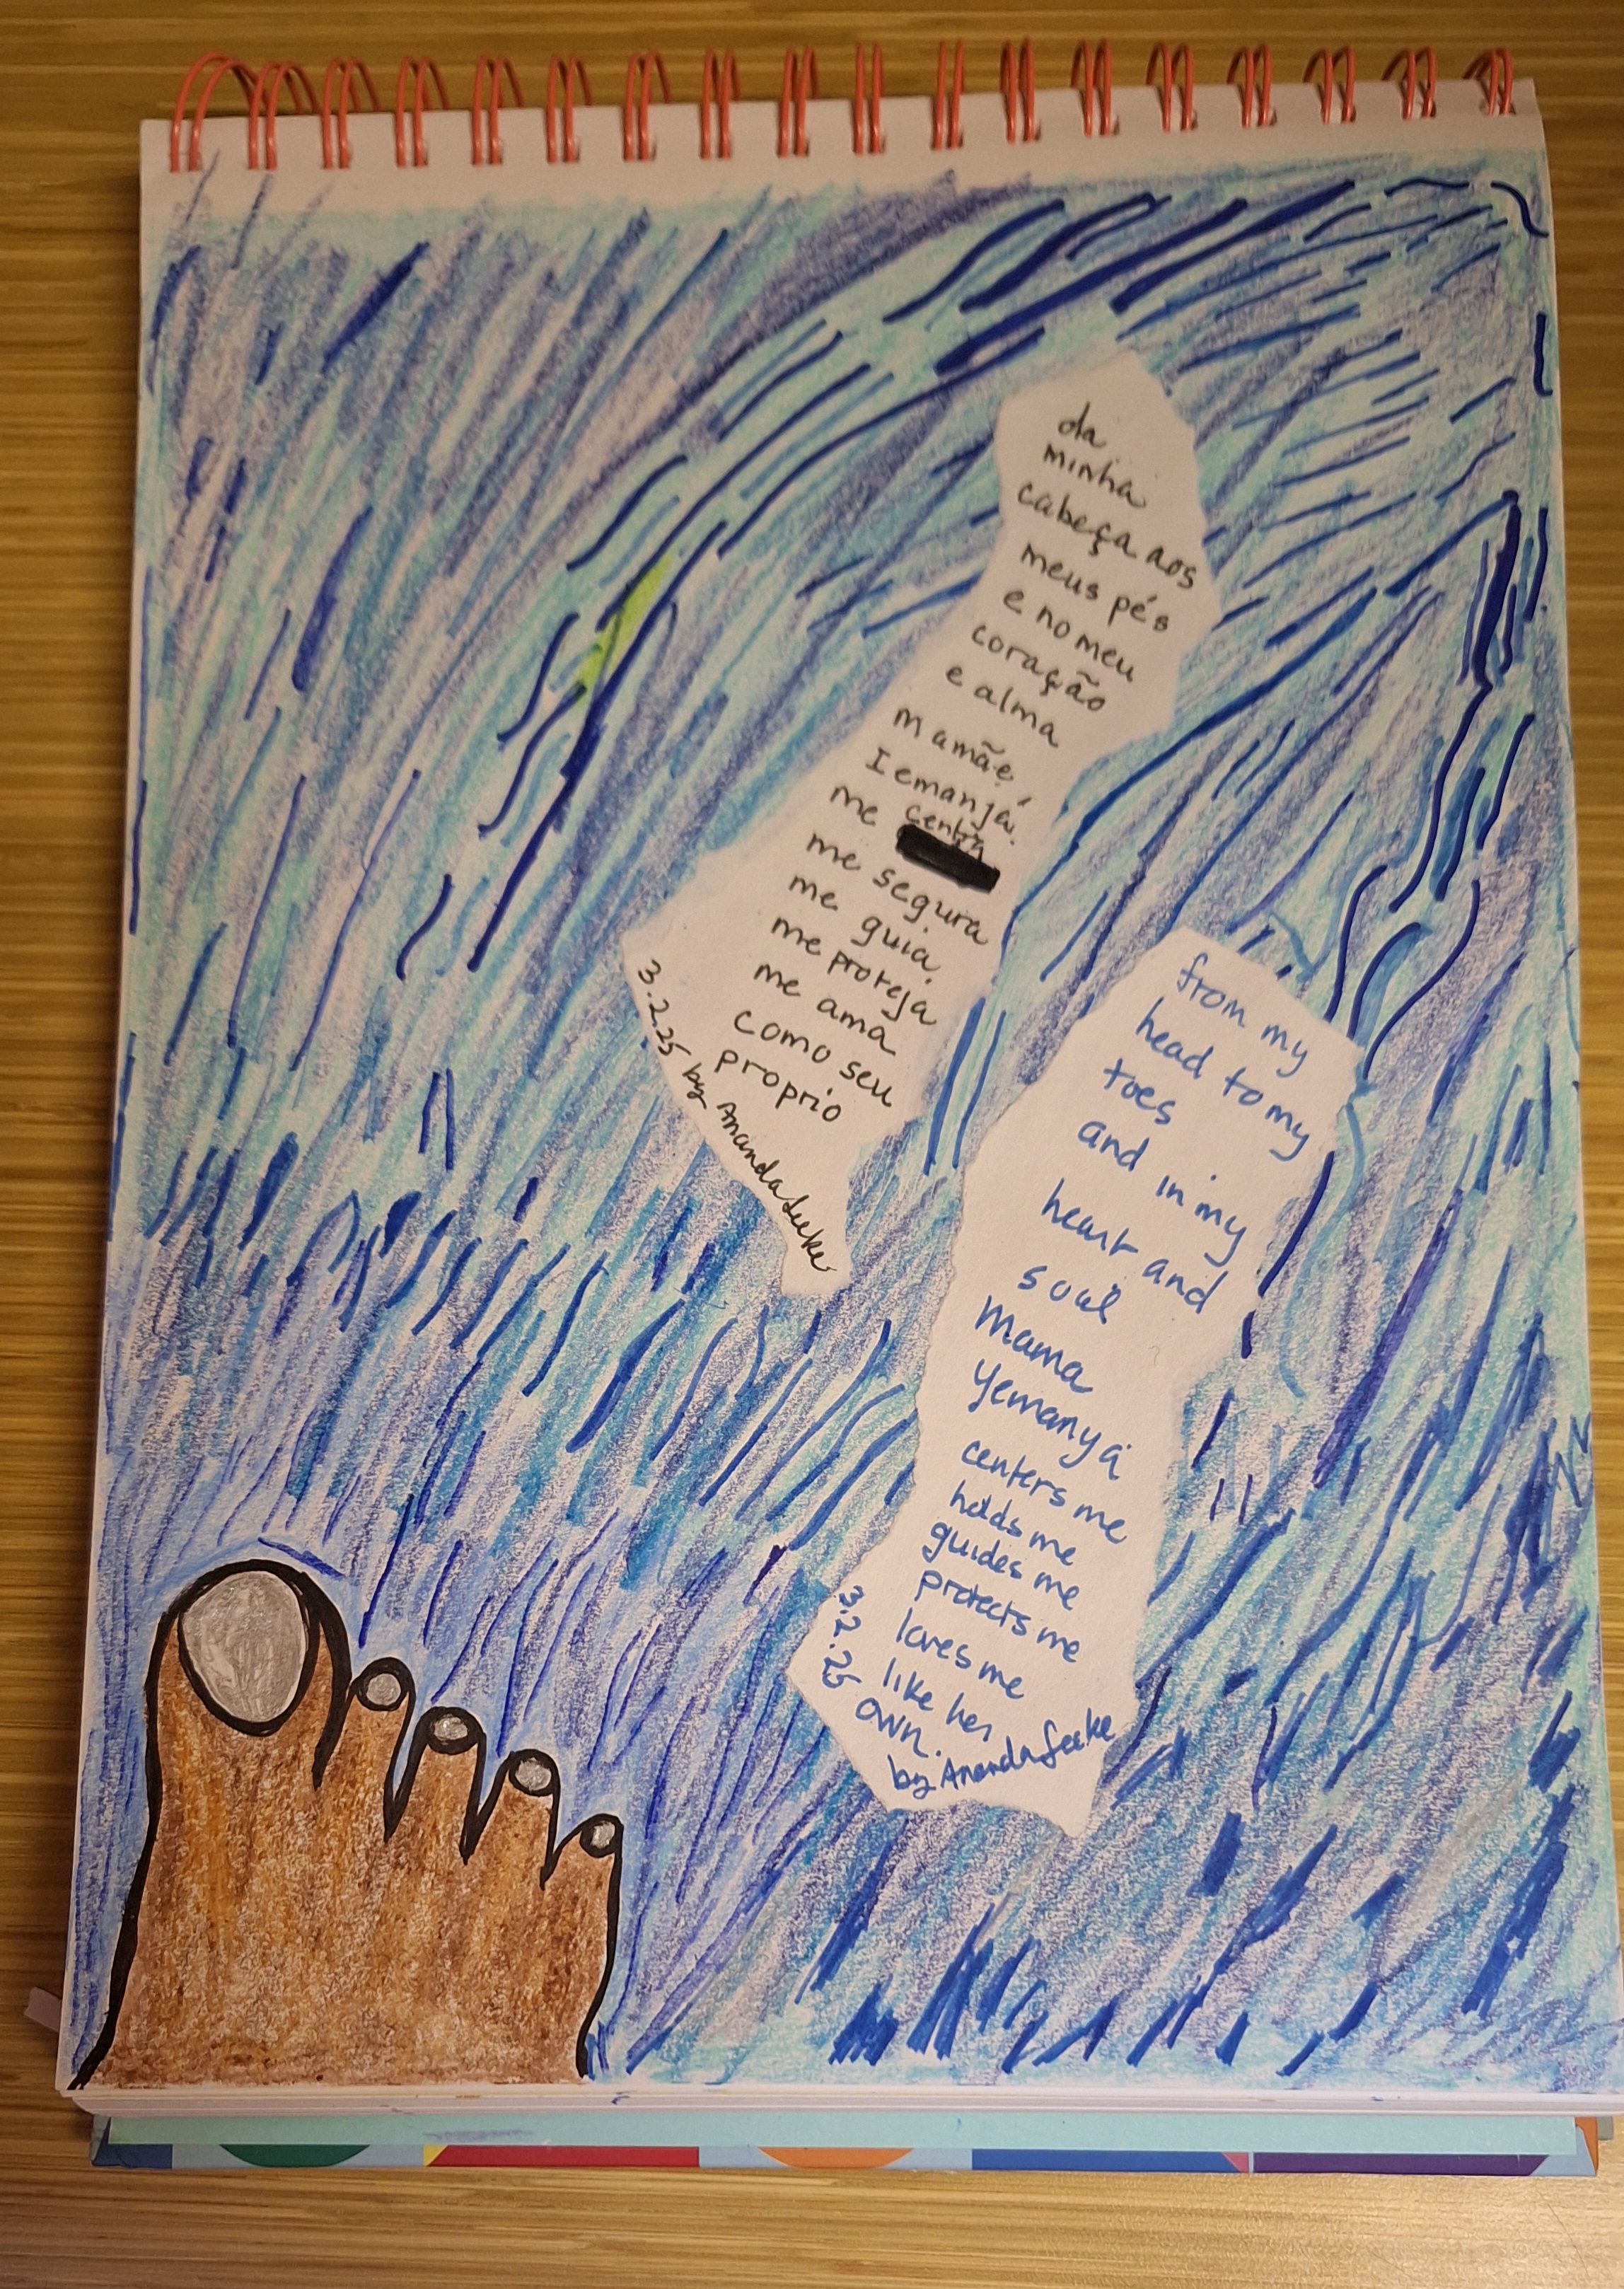 da
minha
cabeça aos
meus pés
e no meu
coração
e alma
mamãe
Iemanjá
me centra
me segura
me guia
me proteja
me ama
como seu
proprio
3.2.25 by Ananda Leeke
from my
head to my
toes
and in my
heart and
soul
Mama
Yemanyá
centers me
holds me
guides me
protects me
loves me
like her
own.
3.2.25
by Ananda Leeke